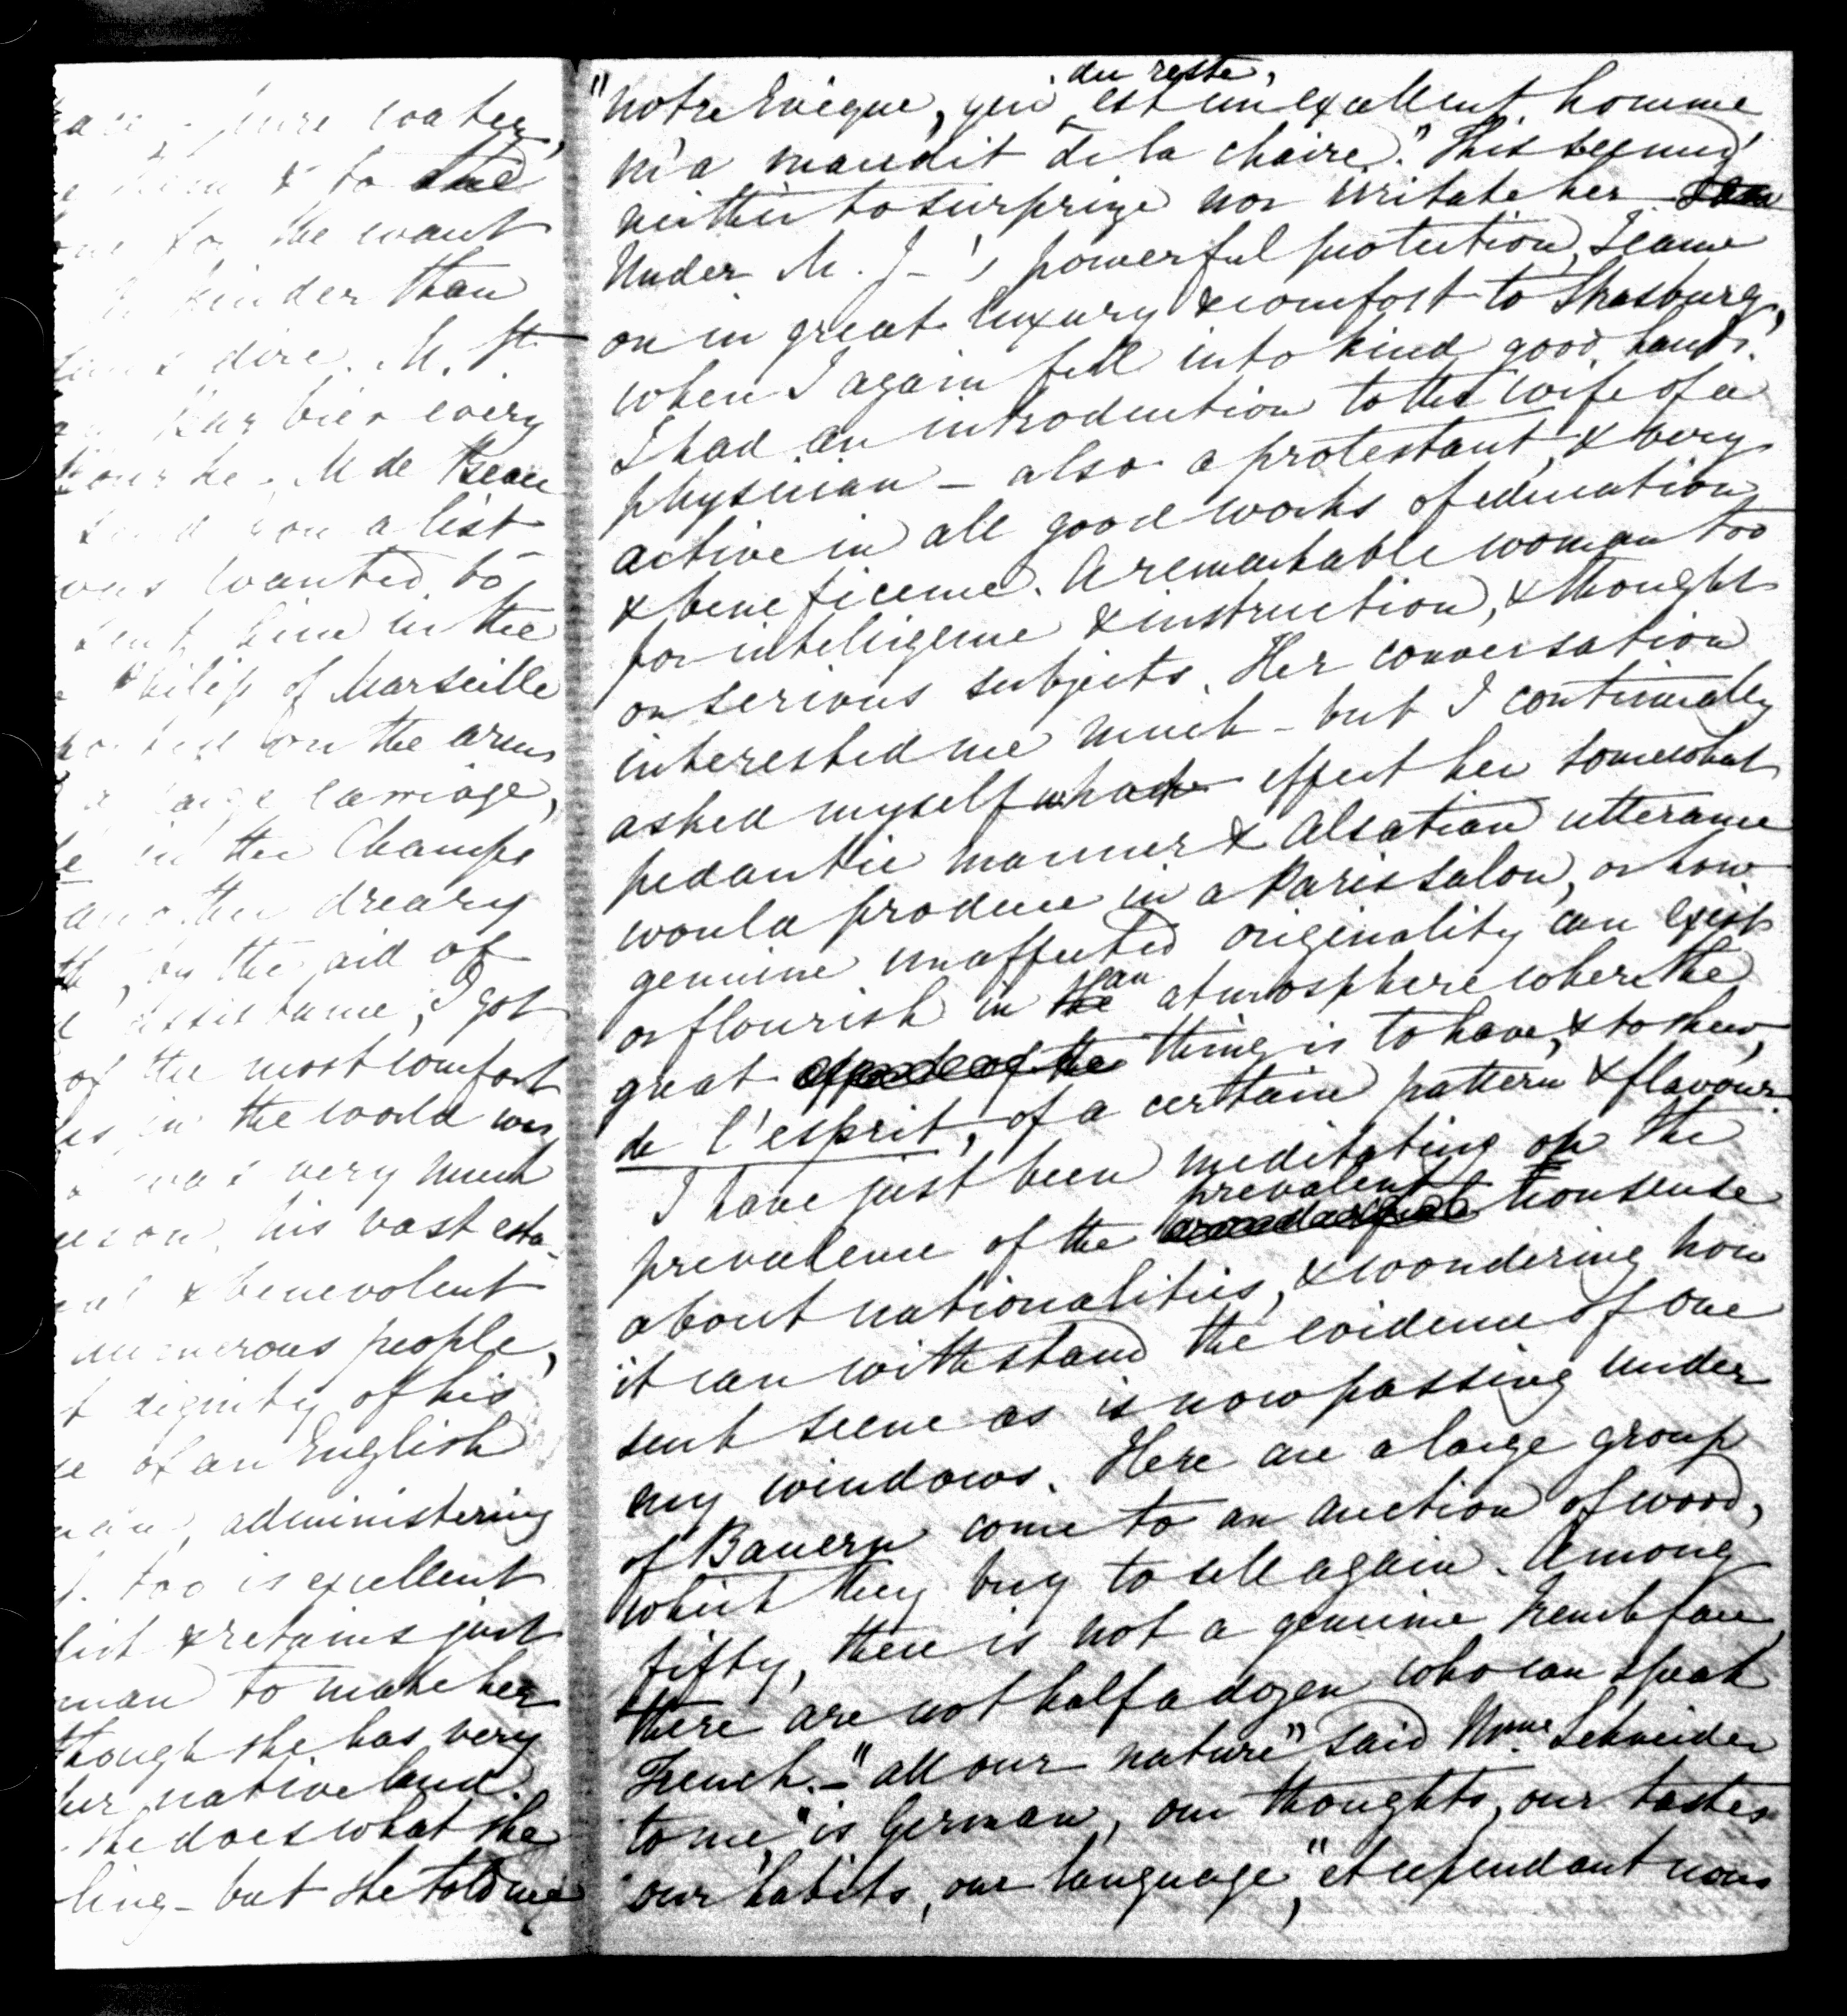 pure water,
& to the
for the want
kinder than
dire. M. St
Barbier every
M de Beau
you a list
was wanted to
him in the
Philip of Marseille
on the arms
large carriage,
in the Champs
another dreary
by the aid of
assistance, I got
of the most comfort
in the world was
was very much
his vast esta-
& benevolent
numerous people,
dignity of his
of an English
administering
too is excellent
& retains just
man to make her
though she has very
her native land.
she does what she
ling - but she told me
"Notre Evêque, qui du reste, est un excellent homme
m'a maudit de la chaire." This seemed
neither to surprize nor irritate her
Under M. J-'s powerful protection, I came
on in great luxury & comfort to Strasburg,
when I again fell into kind good hands.
I had an introduction to the wife of a
physician - also a protestant, & very
active in all good works of education
& beneficence. A remarkable woman too
for intelligence & instruction, & thought
on serious subjects. Her conversation
interested me much - but I continually
asked myself what effect her somewhat
pedantic manner & Alsatian utterance
would produce in a Paris salon, or how
genuine unaffected originality can exist
or flourish in the an atmosphere where the
great thing is to have, & to shew,
de l'esprit, of a certain pattern & flavour.
I have just been meditating on the
prevalence of the prevalent nonsense
about nationalities, & wondering how
it can withstand the evidence of one
such scene as is now passing under
my windows. Here are a large group
of Bauern come to an auction of wood,
which they buy to sell again. Among
fifty, there is not a genuine French face,
there are not half a dozen who can speak
French. - "all our nature" said Mme Schneider
to me, "is German, our thoughts, our tastes
our habits, our language," et cependant nous